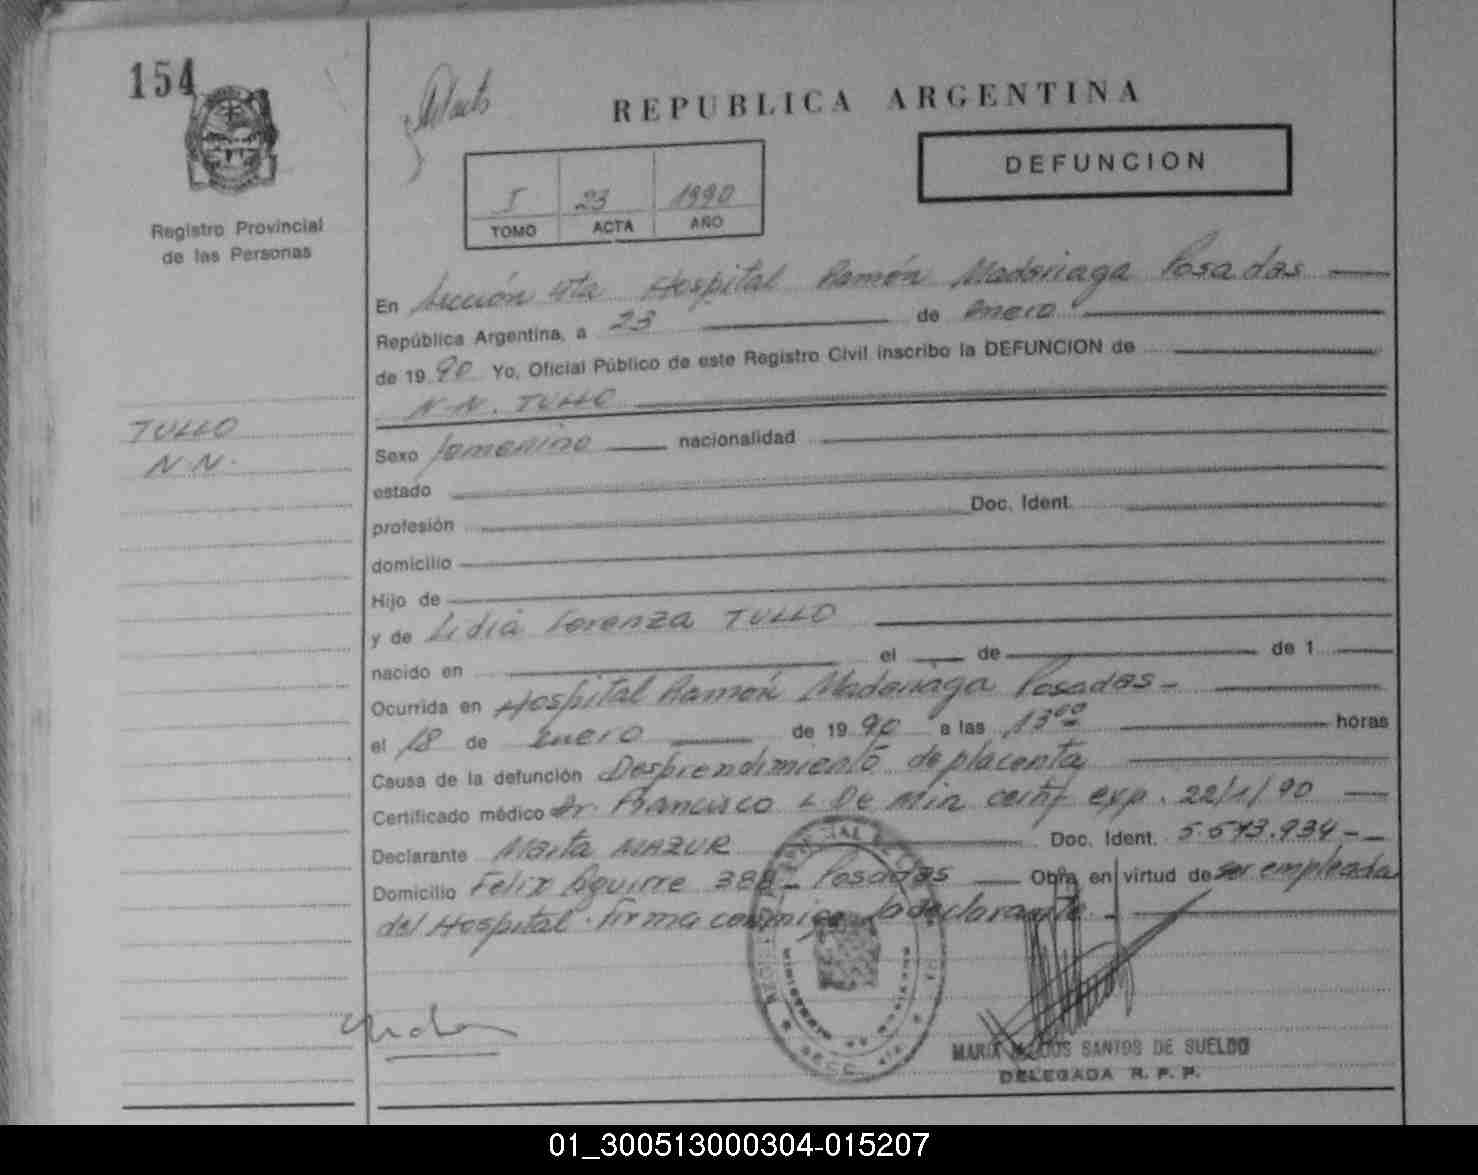 154
REPUBLICA ARGENTINA
DEFUNCION
I 23 1990
TOMO ACTA AÑO
Registro Provincial
de las Personas
En Sección 4ta Hospital Ramón Madariaga Posadas
República Argentina, a 23 de enero
de 1990 Yo, Oficial Público de este Registro Civil inscribo la DEFUNCION de
N.N. TULLO
TULLO
N.N.
Sexo femenino nacionalidad
estado
profesión Doc. Ident.
domicilio
Hijo de
y de Lidia Lorenza TULLO
nacido en el de de 1
Ocurrida en Hospital Ramón Madariaga Posadas-
el 18 de enero de 1990 a las 13ºº horas
Causa de la defunción Desprendimiento de placenta
Certificado médico Dr. Francisco L De Min certf exp. 22/1/90
Declarante Marta MAZUR Doc. Ident. 5.573.934-
Domicilio Felix Aguirre 388- Posadas Obra en virtud de ser empleada
del Hospital. firma conmigo la declarante.-
SANTOS DE SUELDO
DELEGADA R. P. P.
01_300513000304-015207